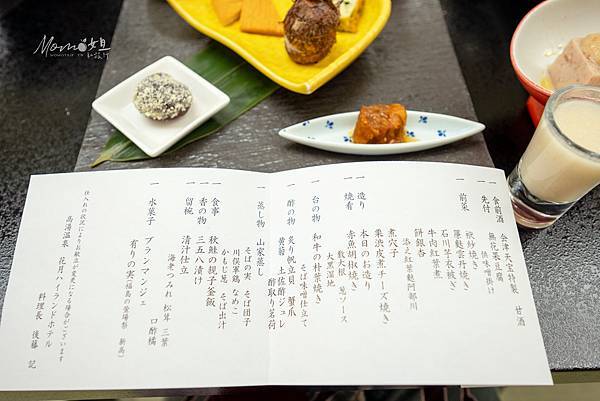 Momo姐
MOMOTRIP.TW
一 食前酒 会津天宝特製 甘酒
一 先付 無花果豆腐
供味噌掛け
一 前菜 袱紗焼き
蓮麩雲丹焼き
石川芋衣被ぎ
牛肉紅葉煮
餅銀杏
添え紅葉麩阿部川
煮穴子
栗渋皮煮チーズ焼き
一 造り 本日のお造り
一 焼肴 赤魚胡椒焼き
敷大根 葱ソース
大黒湿地
一 台の物 和牛の朴葉焼き
そば味噌仕立て
一 酢の物 炙り帆立貝 蟹爪
黄韮 土佐酢ジュレ
酢取り茗荷
一 蒸し物 山家蒸し
そばの実 そば団子
川俣軍鶏 なめこ
かもじ葱 そば出汁
一 食事 秋鮭の親子釜飯
一 香の物 三五八漬け
一 留椀 清汁仕立
海老つみれ 松茸 三葉
口酢橘
一 水菓子 ブランマンジェ
有りの実(福島の萱場梨 新高)
仕入れの状況によりお献立が変更になる場合がございます
高湯温泉 花月ハイランドホテル
料理長 後藤 記